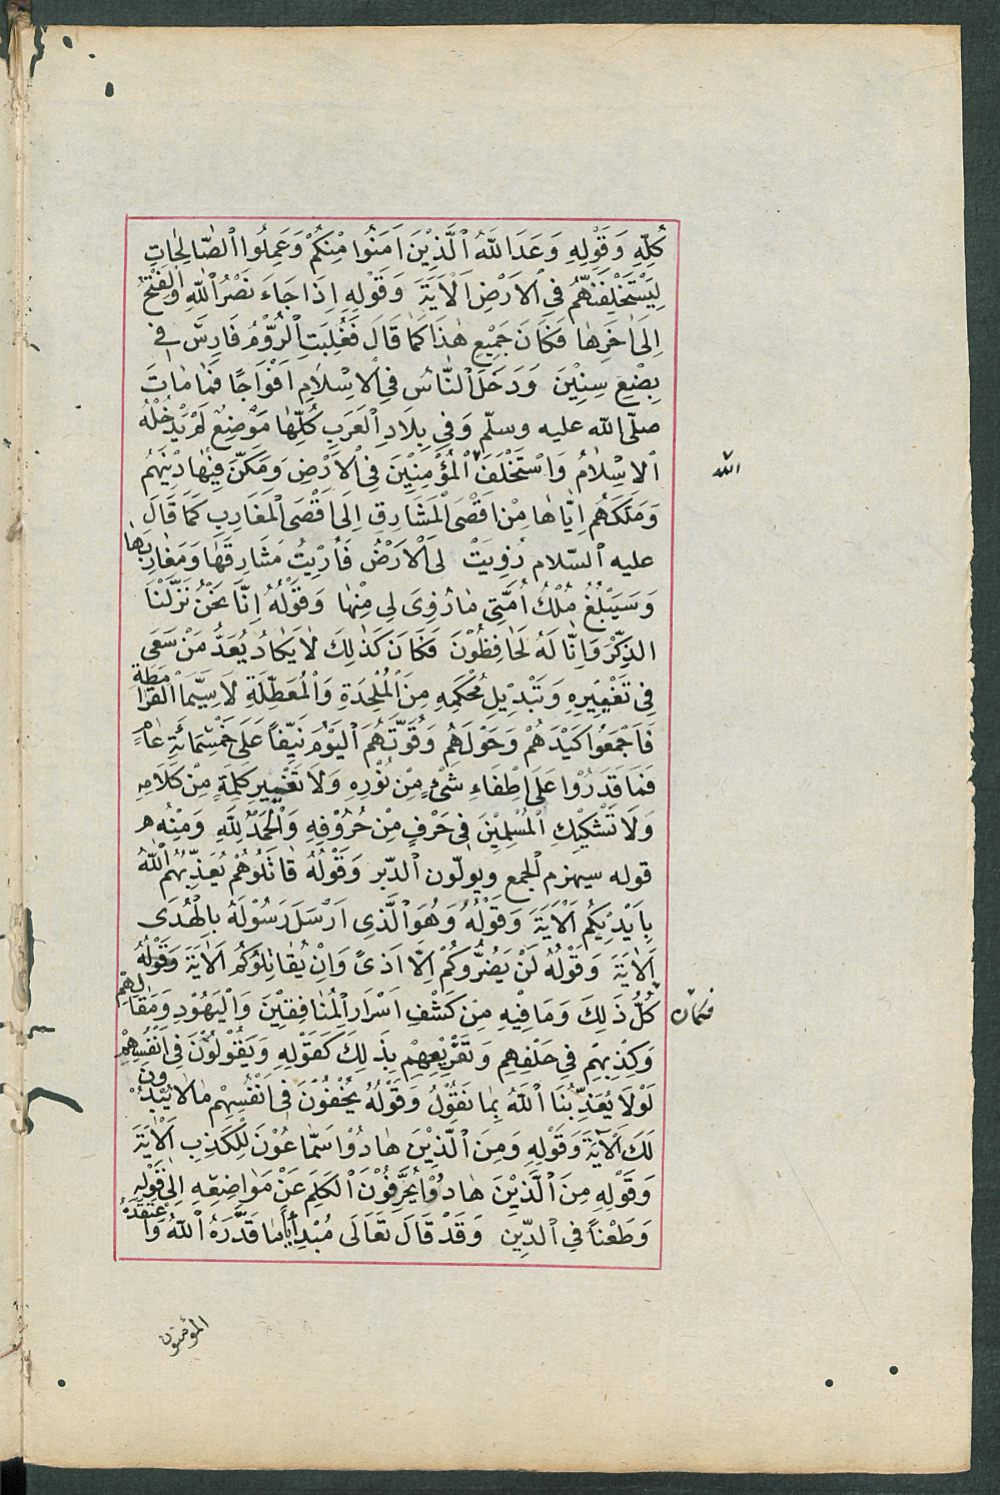 كُلِّهِ وَقَوْلِهِ وَعَدَ اللّٰهُ الَّذِيْنَ اٰمَنُوا مِنْكُمْ وَعَمِلُوا الصّٰالِحٰاتِ
لِيَسْتَخْلِفَنَّهُمْ فِي الْاَرْضِ الْاٰيَةَ وَقَوْلِهِ اِذَا جَاءَ نَصْرُ اللّٰهِ وَالْفَتْحُ
اِلَى اٰخِرِهٰا فَكَانَ جَمِيْعِ هٰذَا كَمٰا قَالَ فَغُلِبَتِ الرُّوْمُ فَارِسَ فِي
بِضْعِ سِنِيْنَ وَدَخَلَ النّٰاسُ فِي الْاِسْلَامِ اَفْوَاجًا فَمٰا مٰاتَ
صلّى الله عليه وسلّم وَفِي بِلَادِ الْعَرَبِ كُلِّهٰا مَوْضِعٌ لَمْ يَدْخُلْهُ
الْاِسْلٰامُ وَاسْتَخْلَفَ الْمُؤْمِنِيْنَ فِي الْاَرْضِ وَمَكَّنَ فِيْهٰا دِيْنَهُمْ
الله
وَمَلَّكَهُمْ اِيّٰاهٰا مِنْ اَقْصَى الْمَشَارِقِ اِلَى اَقْصَى الْمَغَارِبِ كَمَا قَالَ
عليه السّلام زُوِيَتْ لِيَ الْاَرْضُ فَاُرِيْتُ مَشَارِقَهٰا وَمَغٰارِبَهٰا
وَسَيَبْلُغُ مُلْكُ اُمَّتِي مٰا زُوِيَ لِي مِنْهٰا وَقَوْلُهُ اِنَّا نَحْنُ نَزَّلْنَا
الذِّكْرَ وَاِنّٰا لَهُ لَحٰافِظُوْنَ فَكَانَ كَذٰلِكَ لٰا يَكٰادُ يُعَدُّ مَنْ سَعَى
فِي تَغْيِيْرِهِ وَتَبْدِيْلِ مُحْكَمِهِ مِنَ الْمُلْحِدَةِ وَالْمُعَطِّلَةِ لَا سِيَّمَا الْقَرٰامِطَةِ
فَاَجْمَعُوْا كَيْدَهُمْ وَحَوْلَهُمْ وَقُوَّتَهُمُ الْيَوْمَ نَيِّفًا عَلَى خَمْسِمِائَةِ عٰامٍ
فَمَا قَدَرُوْا عَلَى اِطْفَاءِ شَيْءٍ مِنْ نُوْرِهِ وَلَا تَغْيِيرِ كَلِمَةٍ مِنْ كَلَامِهِ
وَلَا تَشْكِيْكِ الْمُسْلِمِيْنَ فِي حَرْفٍ مِنْ حُرُوْفِهِ وَالْحَمْدُ لِلّٰهِ وَمِنْهُ
قوله سيهزم الجمع ويولّون الدّبر وَقَوْلُهُ قَاتِلُوْهُمْ يُعَذِّبْهُمُ اللّٰهُ
بِاَيْدِيْكُمْ الْاٰيَةَ وَقَوْلُهُ وَهُوَ الَّذِي اَرْسَلَ رَسُوْلَهُ بِالْهُدَى
الْاٰيَةَ وَقَوْلُهُ لَنْ يَضُرُّوْكُمْ اِلّٰا اَذًى وَاِنْ يُقٰاتِلُوْكُمْ الْاٰيَةَ وَقَوْلُهُ
فكان
كُلُّ ذٰلِكَ وَمَا فِيْهِ مِنْ كَشْفِ اَسْرَارِ الْمُنٰافِقِيْنَ وَالْيَهُوْدِ وَمَقَالِهِمْ
وَكِذْبِهِمْ فِي حَلْفِهِمْ وَتَقْرِيْعِهِمْ بِذٰلِكَ كَقَوْلِهِ وَيَقُوْلُوْنَ فِي اَنْفُسِهِمْ
لَوْلَا يُعَذِّبُنَا اللّٰهُ بِمٰا نَقُوْلُ وَقَوْلُهُ يُخْفُوْنَ فِي اَنْفُسِهِمْ مٰا لَا يُبْدُوْنَ
لَكَ الْاٰيَةَ وَقَوْلِهِ وَمِنَ الَّذِيْنَ هٰادُوْا سَمّٰاعُوْنَ لِلْكَذِبِ الْاٰيَةَ
وَقَوْلِهِ مِنَ الَّذِيْنَ هٰادُوْا يُحَرِّفُوْنَ الْكَلِمَ عَنْ مَوٰاضِعِهِ اِلَى قَوْلِهِ
وَطَعْنًا فِي الدِّيْنِ وَقَدْ قَالَ تَعَالَى مُبْدِأً مٰا قَدَّرَهُ اللّٰهُ وَاعْتَقَدَهُ
المؤمنون